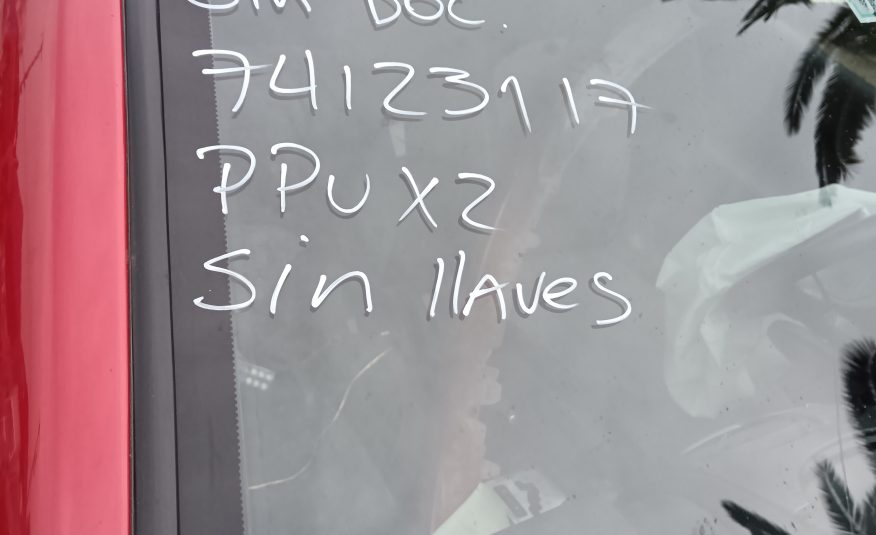 Sin DOC.
74123117
PPU X2
Sin llAVes